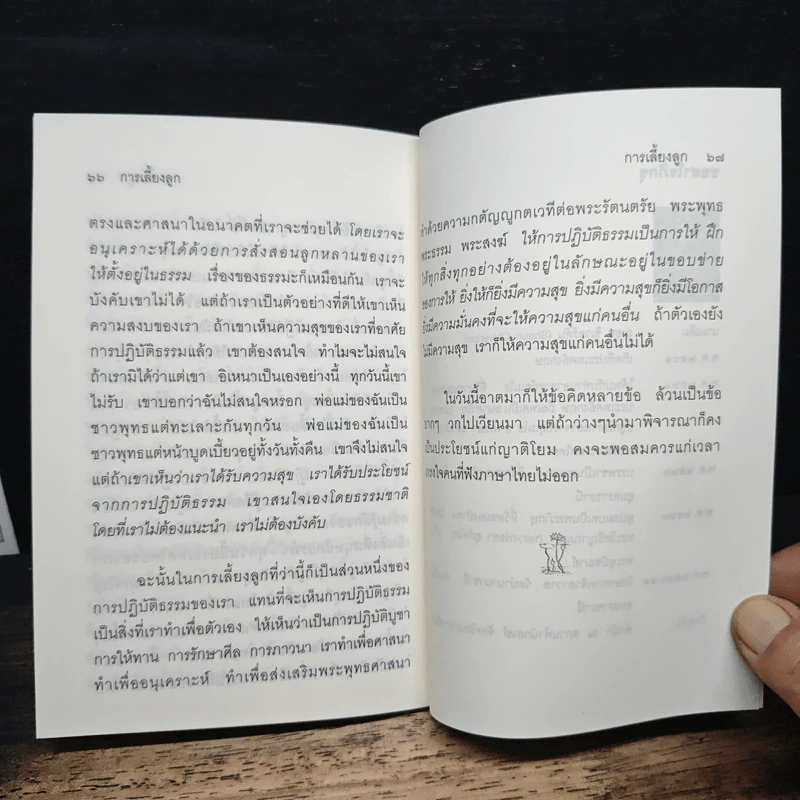 ๖๖ การเลี้ยงลูก
ตรงและศาสนาในอนาคตที่เราจะช่วยได้ โดยเราจะ
อนุเคราะห์ได้ด้วยการสั่งสอนลูกหลานของเรา
ให้ตั้งอยู่ในธรรม เรื่องของธรรมะก็เหมือนกัน เราจะ
บังคับเขาไม่ได้ แต่ถ้าเราเป็นตัวอย่างที่ดีให้เขาเห็น
ความสงบของเรา ถ้าเขาเห็นความสุขของเราที่อาศัย
การปฏิบัติธรรมแล้ว เขาต้องสนใจ ทำไมจะไม่สนใจ
ถ้าเรามิได้ว่าแต่เขา อิเหนาเป็นเองอย่างนี้ ทุกวันนี้เขา
ไม่รับ เขาบอกว่าฉันไม่สนใจหรอก พ่อแม่ของฉันเป็น
ชาวพุทธแต่ทะเลาะกันทุกวัน พ่อแม่ของฉันเป็น
ชาวพุทธแต่หน้าบูดเบี้ยวอยู่ทั้งวันทั้งคืน เขาจึงไม่สนใจ
แต่ถ้าเขาเห็นว่าเราได้รับความสุข เราได้รับประโยชน์
จากการปฏิบัติธรรม เขาสนใจเองโดยธรรมชาติ
โดยที่เราไม่ต้องแนะนำ เราไม่ต้องบังคับ
ฉะนั้นในการเลี้ยงลูกที่ว่านี้ก็เป็นส่วนหนึ่งของ
การปฏิบัติธรรมของเรา แทนที่จะเห็นการปฏิบัติธรรม
เป็นสิ่งที่เราทำเพื่อตัวเอง ให้เห็นว่าเป็นการปฏิบัติบูชา
การให้ทาน การรักษาศีล การภาวนา เราทำเพื่อศาสนา
ทำเพื่ออนุเคราะห์ ทำเพื่อส่งเสริมพระพุทธศาสนา
การเลี้ยงลูก ๖๗
ทำด้วยความกตัญญูกตเวทีต่อพระรัตนตรัย พระพุทธ
พระธรรม พระสงฆ์ ให้การปฏิบัติธรรมเป็นการให้ ฝึก
ให้ทุกสิ่งทุกอย่างต้องอยู่ในลักษณะอยู่ในขอบข่าย
ของการให้ ยิ่งให้ก็ยิ่งมีความสุข ยิ่งมีความสุขก็ยิ่งมีโอกาส
ยิ่งมีความมั่นคงที่จะให้ความสุขแก่คนอื่น ถ้าตัวเองยัง
ไม่มีความสุข เราก็ให้ความสุขแก่คนอื่นไม่ได้
ในวันนี้อาตมาก็ให้ข้อคิดหลายข้อ ล้วนเป็นข้อ
ยากๆ วกไปเวียนมา แต่ถ้าว่างๆนำมาพิจารณาก็คง
เป็นประโยชน์แก่ญาติโยม คงจะพอสมควรแก่เวลา
เกรงใจคนที่ฟังภาษาไทยไม่ออก